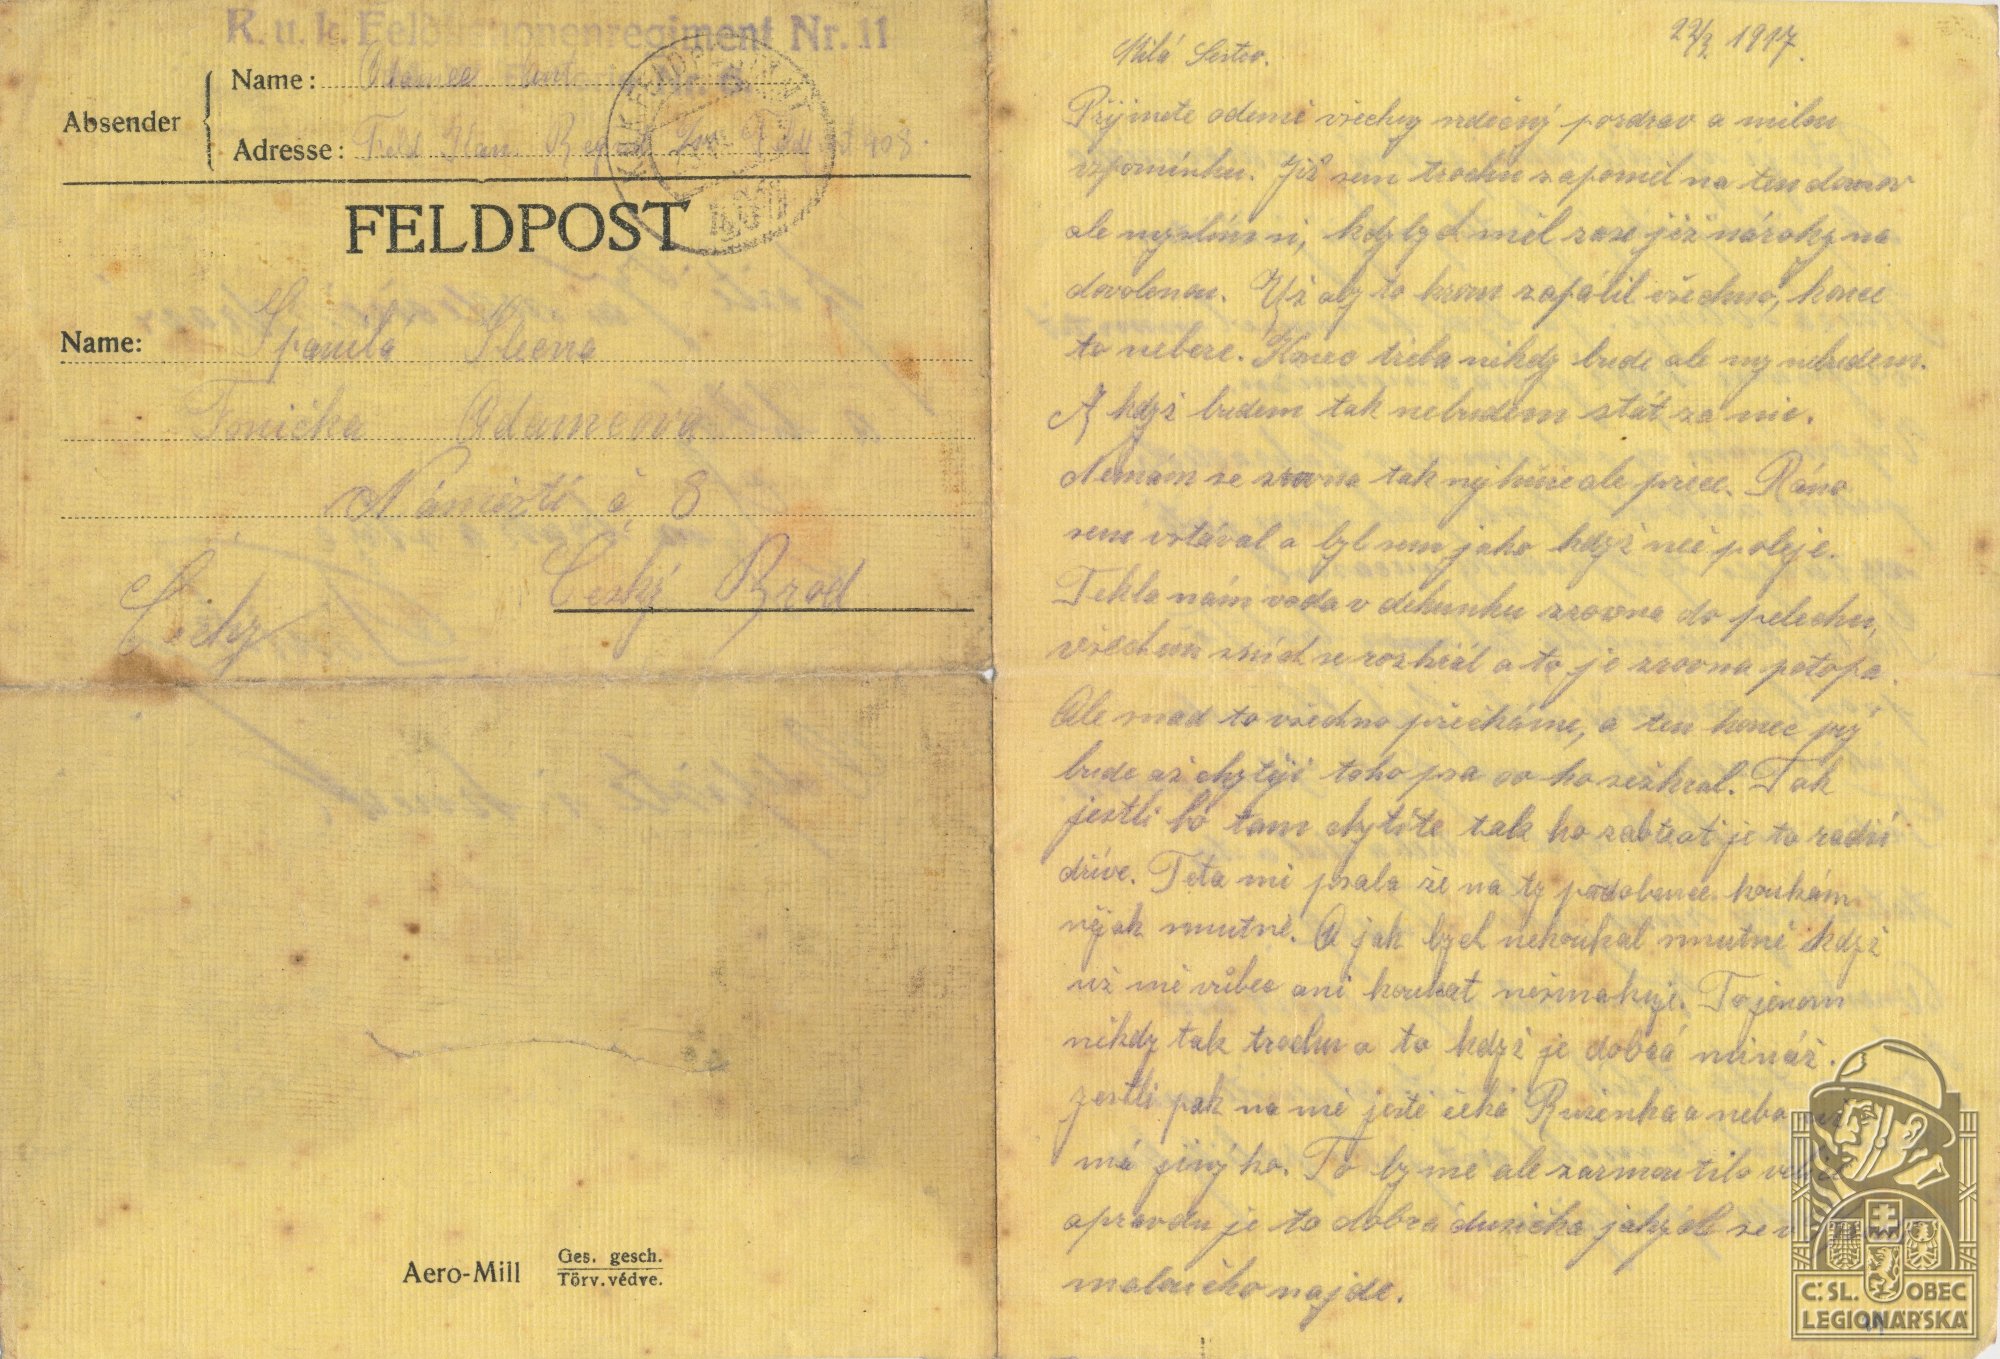 K. u. k. Feldkanonenregiment Nr. 11
Nr. 6.
Absender
Name: Adamec Ant.
Adresse: Feld Kan. Reg. Feldpost 408.
FELDPOST
Name: Spanilá Slečna
Tonička Adamcová
Náměstí č. 8
Český Brod
Čechy
Aero-Mill
Ges. gesch.
Törv. védve.
22/3. 1917.
Milá Sestro.
Přijmete odemě všechny vděčný pozdrav a milou
vzpomínku. Již sem trochu zapoměl na ten domov
ale myslím si, kdybych měl zase již nároky na
dovolenou. Už aby to hrom zapálil všechno, konec
to nebere. Konec třeba někdy bude ale my nebudem.
A když budem tak nebudem stát za nic.
Nemám se zrovna tak nejhůře ale přece. Ráno
sem vstával a byl sem jako když mě poleje.
Tekla nám voda v dekunku zrovna do pelechu,
všechen sníh se rozhřál a to je zrovna potopa.
Ale snad to všechno přečkáme, a ten konec prý
bude až chytěji toho psa co ho sežhral. Tak
jestli ho tam chytíte tak ho zabte ať je to radši
dříve. Teta mi psala že na ty podobence koukám
nějak smutně. A jak bych nekoukal smutně když
už mě vůbec ani koukat nešmakuje. To jenom
někdy tak trochu a to když je dobrá mináž.
Jestli pak na mě ještě čeká Ruženka a nebo
má jinýho. To by mě ale zarmoutilo
opravdu je to dobrá dušička jakých se
maloučko najde.
Č. SL. OBEC
LEGIONÁŘSKÁ